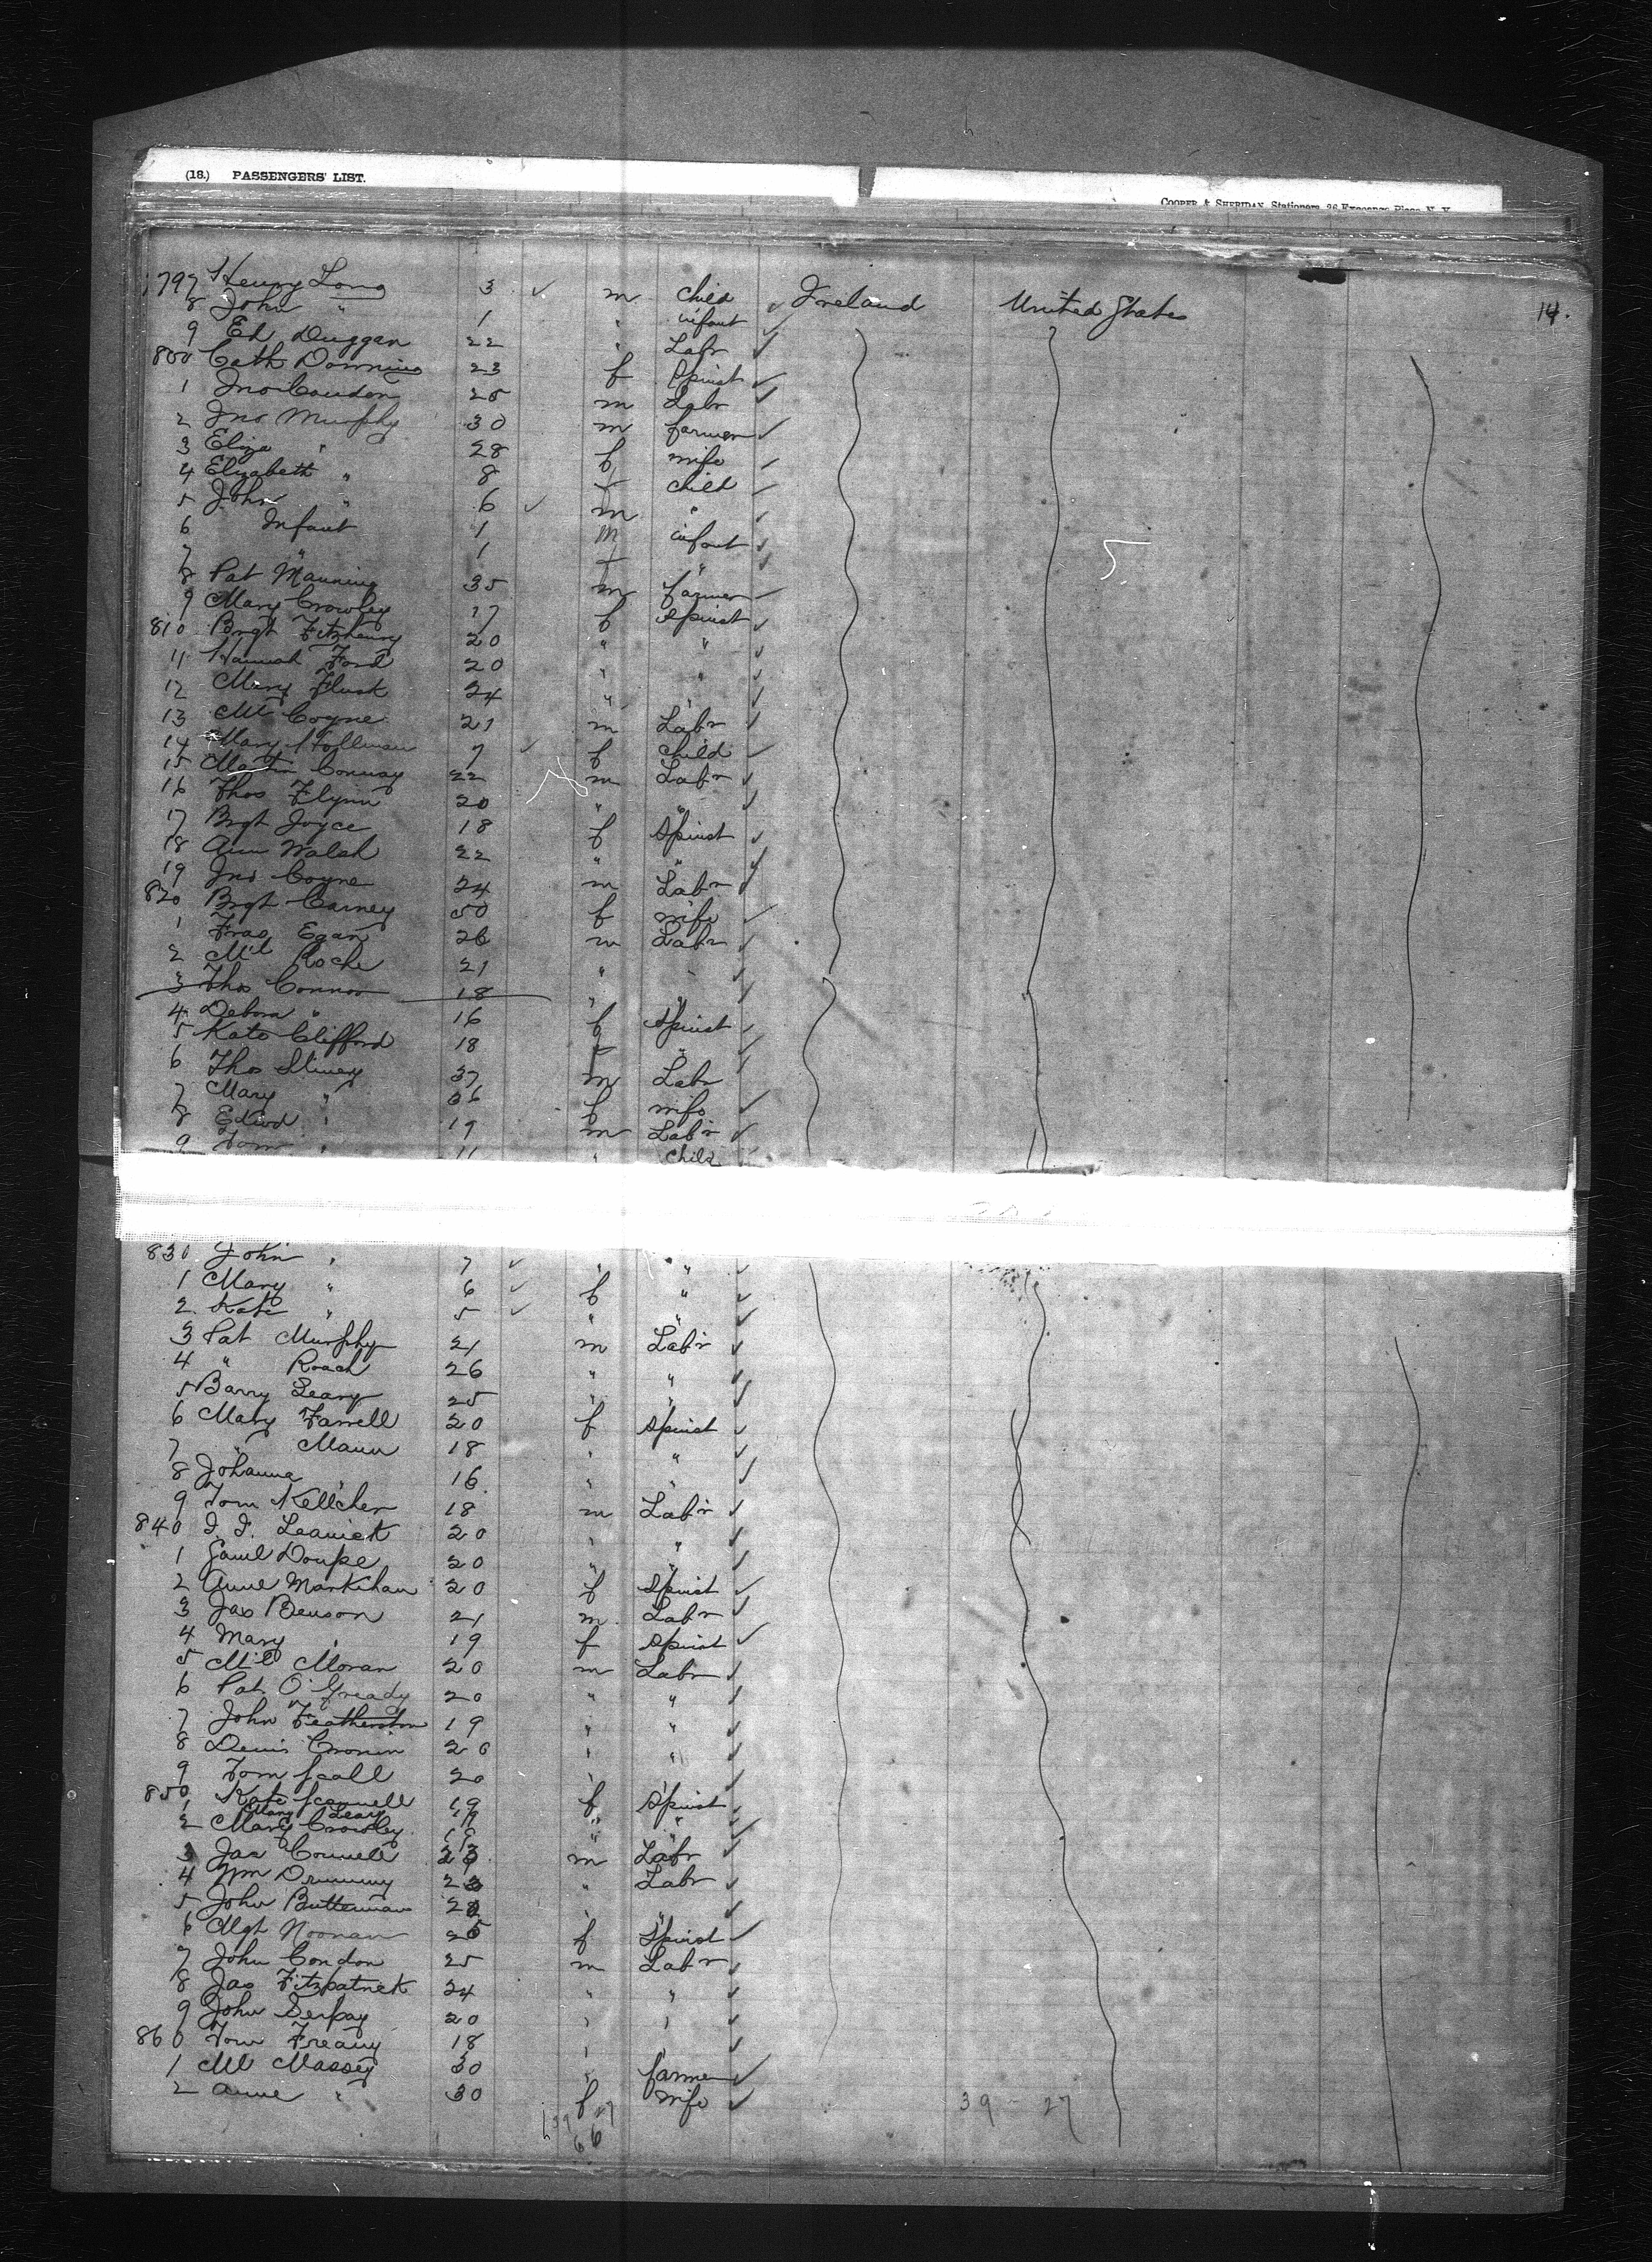 (18.) PASSENGERS' LIST.
COOPER & SHERIDAN, Stationers, 26 Exchange Place, N. Y.
14.
797 Henry Long 3 ✓ m child ✓ Ireland United States
8 John " 1 " infant ✓
9 Ed Duggan 22 " Labr ✓
800 Cath Downing 23 f Spinst ✓
1 Jno Condon 25 m Labr ✓
2 Jno Murphy 30 m farmer ✓
3 Eliza " 28 f wife ✓
4 Elizabeth " 8 f child ✓
5 John " 6 ✓ m " ✓
6 Infant 1 m infant ✓
7 " 1 f " ✓
8 Pat Manning 35 m farmer ✓
9 Mary Crowley 17 f Spinst ✓
810 Brgt Fitzhenry 20 " " ✓
11 Hannah Ford 20 " " ✓
12 Mary Flusk 24 " " ✓
13 Ml Coyne 21 m Labr ✓
14 Mary Hollman 7 ✓ f child ✓
15 Martin Conway 22 m Labr ✓
16 Thos Flynn 20 " " ✓
17 Brgt Joyce 18 f Spinst ✓
18 Ann Walsh 22 " " ✓
19 Jno Coyne 24 m Labr ✓
820 Brgt Carney 50 f wife ✓
1 Fras Egan 26 m Labr ✓
2 Ml Roche 21 " " ✓
3 Thos Connor 18 " " ✓
4 Debora " 16 f Spinst ✓
5 Kate Clifford 18 f " ✓
6 Thos 37 m Labr
7 Mary " 36 f wife ✓
8 Edwd " 19 m Labr ✓
9 Tom " 11 " child
830 John " 7 ✓ " " ✓
1 Mary " 6 ✓ f " ✓
2 Kate " 5 ✓ " " ✓
3 Pat Murphy 21 m Labr ✓
4 " Roach 26 " " ✓
5 Barry Leary 25 " " ✓
6 Mary Farrell 20 f Spinst ✓
7 " Mann 18 " " ✓
8 Johanna " 16 " " ✓
9 Tom Kellcher 18 m Labr ✓
840 Leanick 20 " " ✓
1 Saml Doupe 20 " " ✓
2 Anne Markihan 20 f Spinst ✓
3 Jas Benson 21 m Labr ✓
4 Mary " 19 f Spinst ✓
5 Ml Moran 20 m Labr ✓
6 Pat O'Gready 20 " " ✓
7 John Featherston 19 " " ✓
8 Denis Cronin 20 " " ✓
9 Tom Scall 20 " " ✓
850 Kate Scannell 19 f Spinst ✓
1 Mary Leary 19 " " ✓
2 Mary Crowley 19 " " ✓
3 Jas Connell 23 m Labr ✓
4 Wm Drummy 23 " Labr ✓
5 John Butterman 22 " " ✓
6 Mgt Noonan 25 f Spinst ✓
7 John Condon 25 m Labr ✓
8 Jas Fitzpatrick 24 " " ✓
9 John Serpay 20 " " ✓
860 Tom Freany 18 " " ✓
1 Ml Massey 30 " farmer ✓
2 Anne " 30 f wife ✓
39 - 27
39 27
66